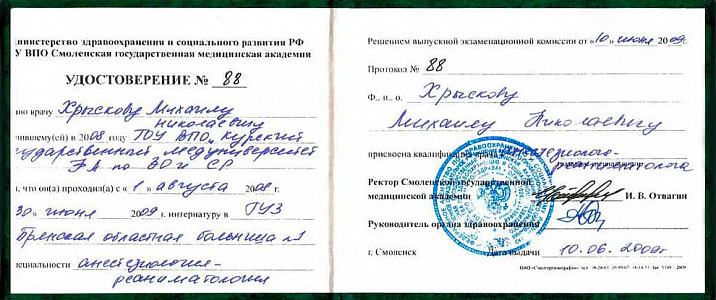 министерство здравоохранения и социального развития РФ
У ВПО Смоленская государственная медицинская академия
УДОСТОВЕРЕНИЕ № 88
но врачу Хрыскову Михаилу
Николаевичу
чившему(ей) в 2008 году ГОУ ВПО „Курский
сударственный медуниверситет
ФА по ЗО и СР
, что он(а) проходил(а) с « 1 » августа 2008 г.
30 » июня 2009 г. интернатуру в ГУЗ
Брянская областная больница №1
специальности анестезиология-
реаниматология
Решением выпускной экзаменационной комиссии от « 10 » июня 2009г.
Протокол № 88
Ф., и., о. Хрыскову
Михаилу Николаевичу
присвоена квалификация врача анестезиолога-
реаниматолога
Ректор Смоленской государственной
медицинской академии И. В. Отвагин
Руководитель органа здравоохранения
г. Смоленск Дата выдачи 10.06.2009г